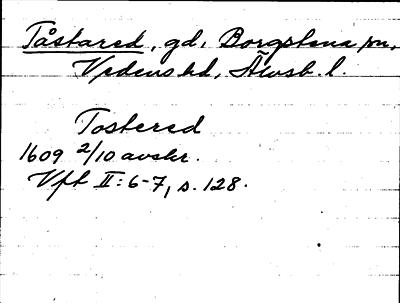 Tåstared, gd, Borgstena sn,
Vedens hd, Älvsb. l.
Tostered
1609 2/10 avskr.
Vft II:6-7, s. 128.